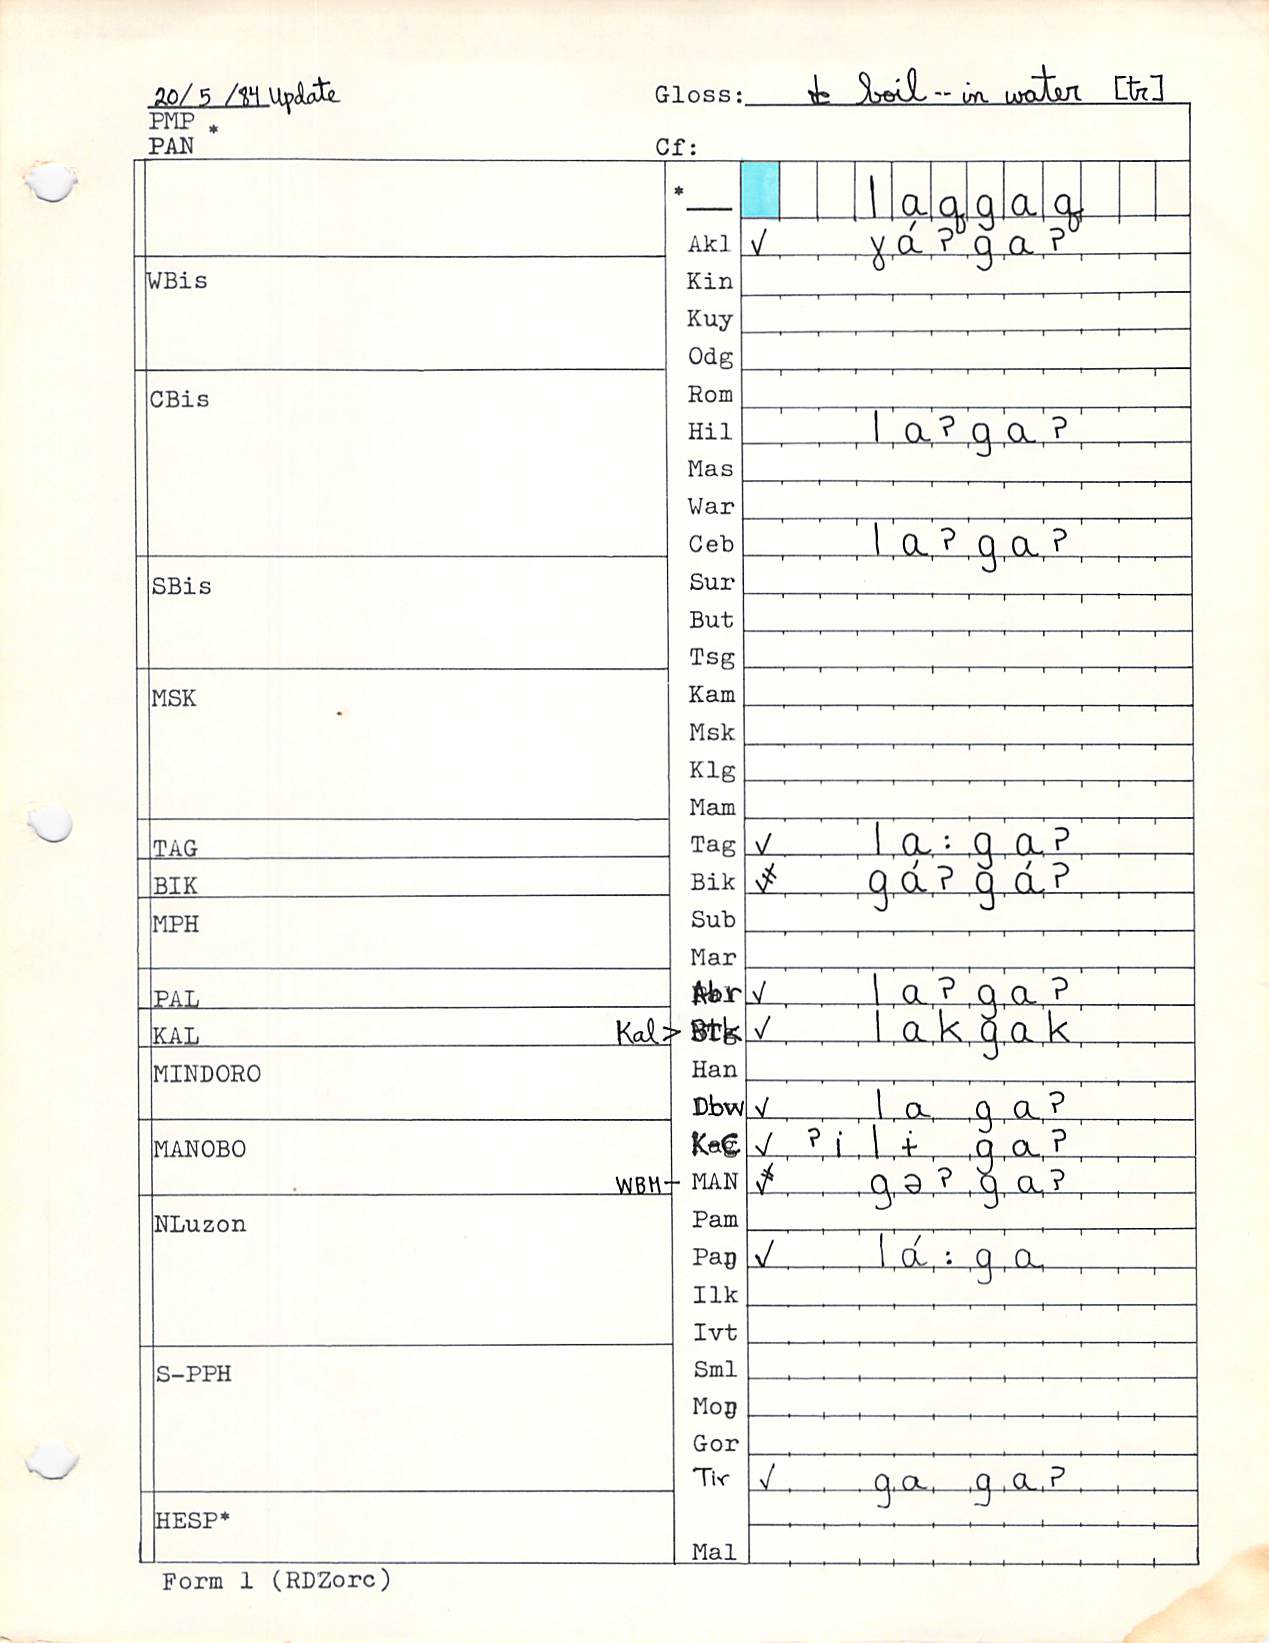 20/5/84 Update Gloss: to boil -- in water [tr]
PMP *
PAN Cf:
* laqgaq
Akl ✓ ɣáʔgaʔ
WBis Kin
Kuy
Odg
CBis Rom
Hil laʔgaʔ
Mas
War
Ceb laʔgaʔ
SBis Sur
But
Tsg
MSK Kam
Msk
Klg
Mam
TAG Tag ✓ la:gaʔ
BIK Bik ✓# gáʔgáʔ
MPH Sub
Mar
PAL Abr ✓ laʔgaʔ
KAL Kal > Btk ✓ lakgak
MINDORO Han
Dbw ✓ la gaʔ
MANOBO KaC ✓ ʔilɨ gaʔ
WBM- MAN ✓# gəʔgaʔ
NLuzon Pam
Paŋ ✓ lá:ga
Ilk
Ivt
S-PPH Sml
Moŋ
Gor
Tir ✓ ga gaʔ
HESP*
Mal
Form 1 (RDZorc)